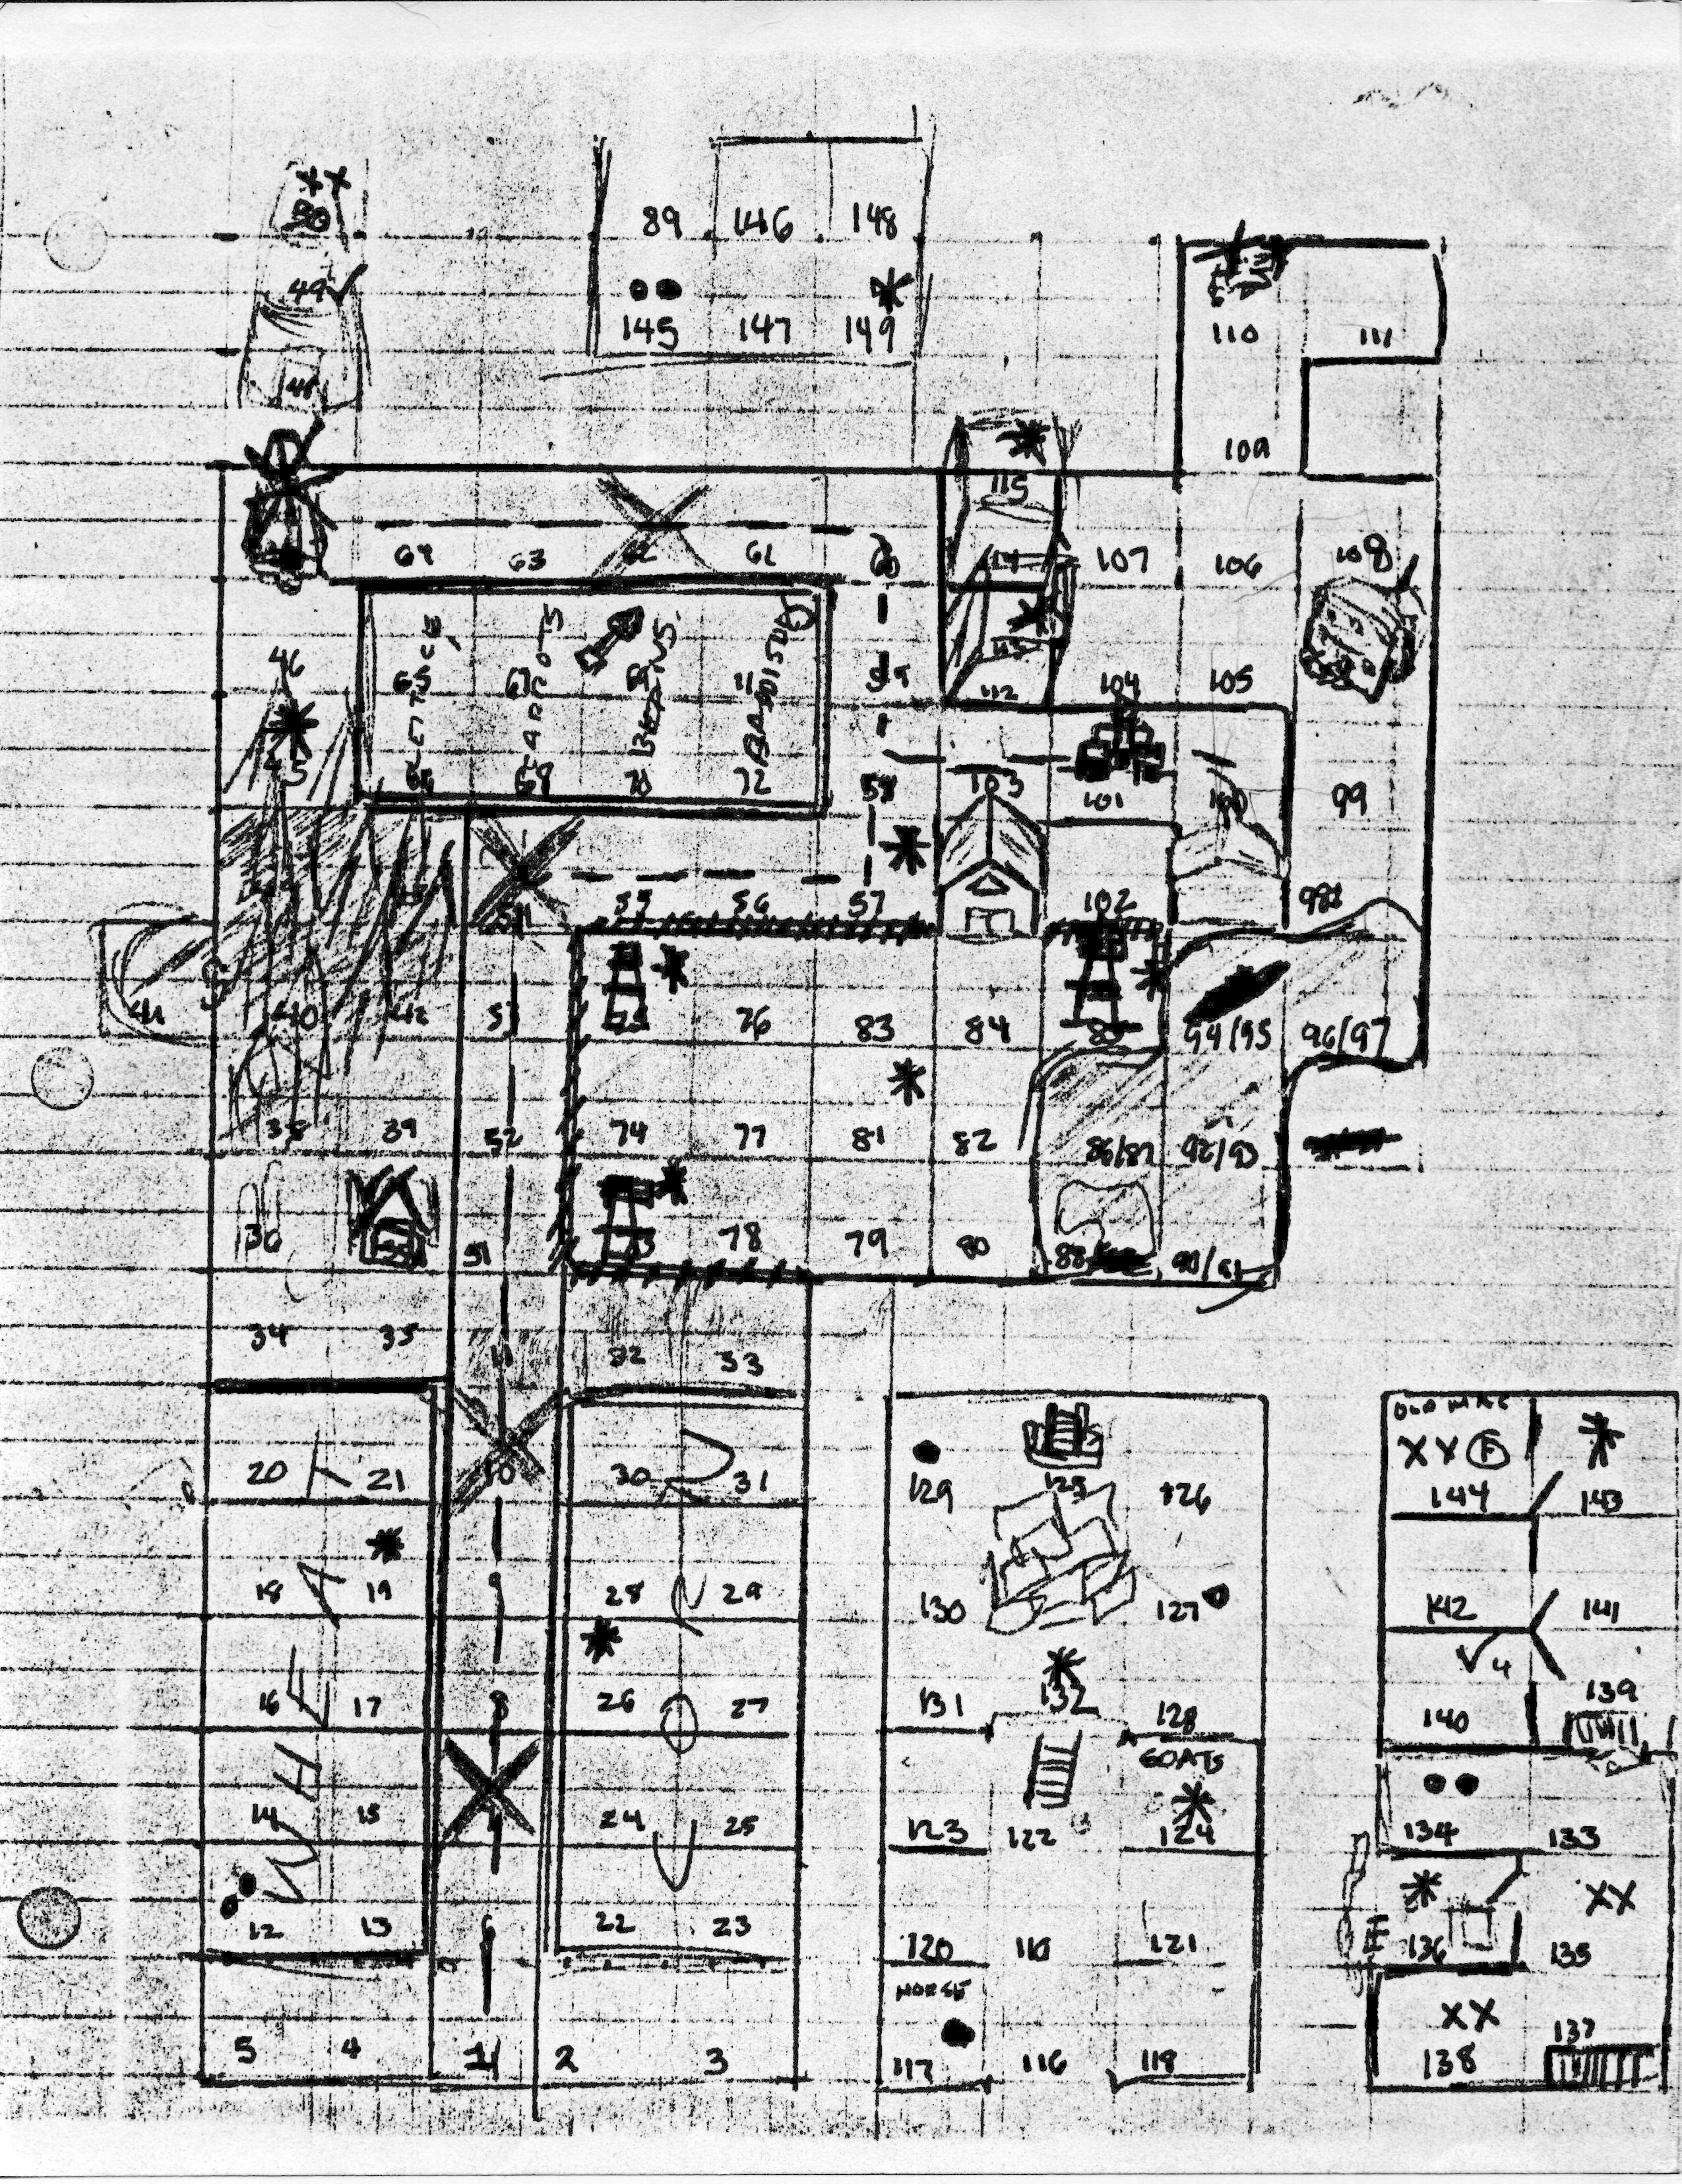 50
89 146 148
49
145 147 149
110 111
48
109
115
64 63 62 61 60
114 107 106 108
LETTUCE CARROTS RADISH
46
65 67 69 71 59
113
112 104 105
45
66 68 70 72 58
103 101 100 99
54 55 56 57 102 98
41 40 42 53 75 76 83 84 85 94/95 96/97
38 39 52 74 77 81 82 86/87 92/93
36 37 51 73 78 79 80 88 90/91
34 35 11 32 33
OLD MAC
XX F
20 21 10 30 31
129 125 126
144 143
18 19 9 28 29
130 127
142 141
4
16 17 8 26 27
131 132 128
140 139
GOATS
14 15 24 25
123 122 124
134 133
XX
12 13 6 22 23
120 119 121
136 135
HORSE
XX
5 4 1 2 3
117 116 118
138 137